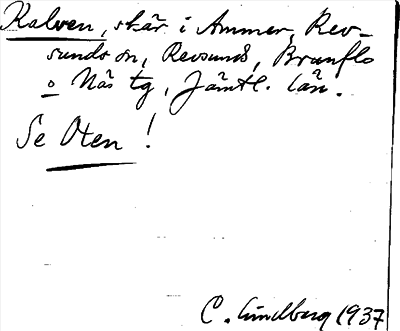 Kalven, skär i Ammer, Rev-
sunds sn, Revsund, Brunflo
o Näs tg, Jämtl. län.
Se Oten!
C. Lindberg 1937